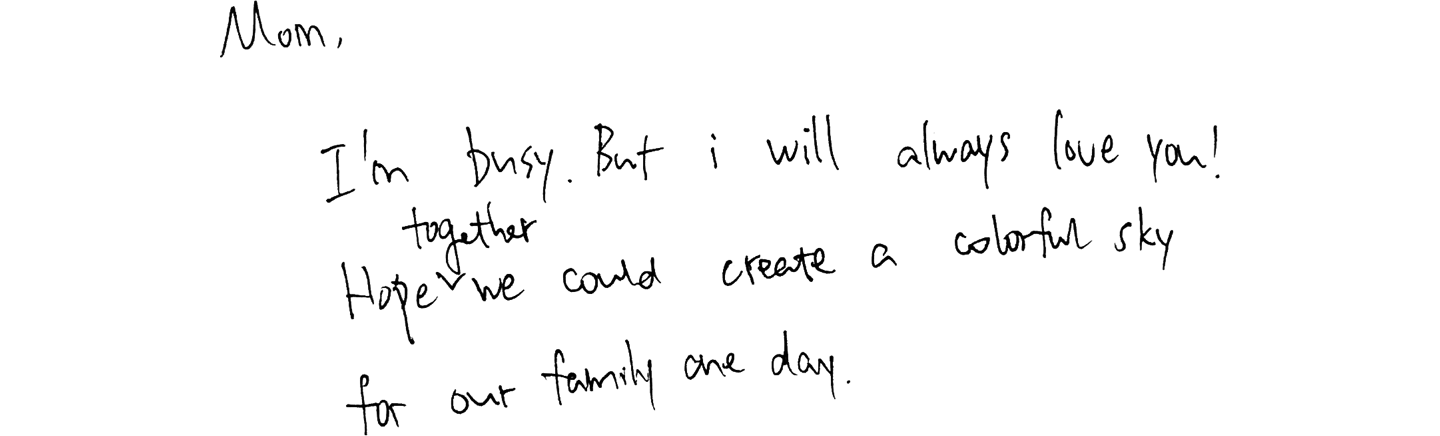 Mom,
I'm busy. But i will always love you!
Hope together we could create a colorful sky
for our family one day.